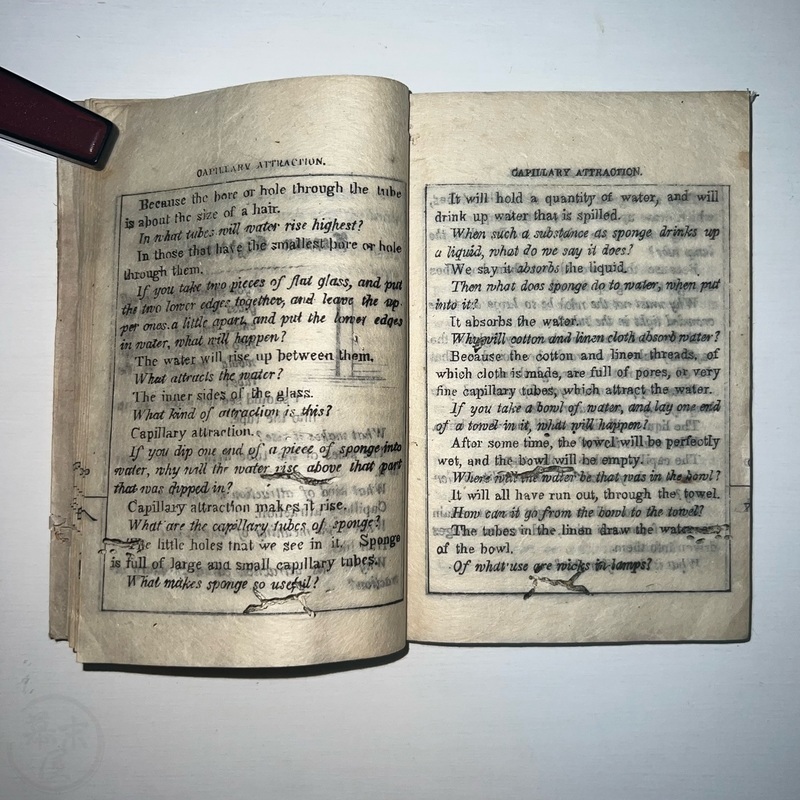 CAPILLARY ATTRACTION.
Because the bore or hole through the tube
is about the size of a hair.
In what tubes will water rise highest?
In those that have the smallest bore or hole
through them.
If you take two pieces of flat glass, and put
the two lower edges together, and leave the up-
per ones a little apart, and put the lower edges
in water, what will happen?
The water will rise up between them.
What attracts the water?
The inner sides of the glass.
What kind of attraction is this?
Capillary attraction.
If you dip one end of a piece of sponge into
water, why will the water rise above that part
that was dipped in?
Capillary attraction makes it rise.
What are the capillary tubes of sponge?
The little holes that we see in it. Sponge
is full of large and small capillary tubes.
What makes sponge so useful?
CAPILLARY ATTRACTION.
It will hold a quantity of water, and will
drink up water that is spilled.
When such a substance as sponge drinks up
a liquid, what do we say it does?
We say it absorbs the liquid.
Then what does sponge do to water, when put
into it?
It absorbs the water.
Why will cotton and linen cloth absorb water?
Because the cotton and linen threads, of
which cloth is made, are full of pores, or very
fine capillary tubes, which attract the water.
If you take a bowl of water, and lay one end
of a towel in it, what will happen?
After some time, the towel will be perfectly
wet, and the bowl will be empty.
Where will the water be that was in the bowl?
It will all have run out, through the towel.
How can it go from the bowl to the towel?
The tubes in the linen draw the water
of the bowl.
Of what use are wicks in lamps?